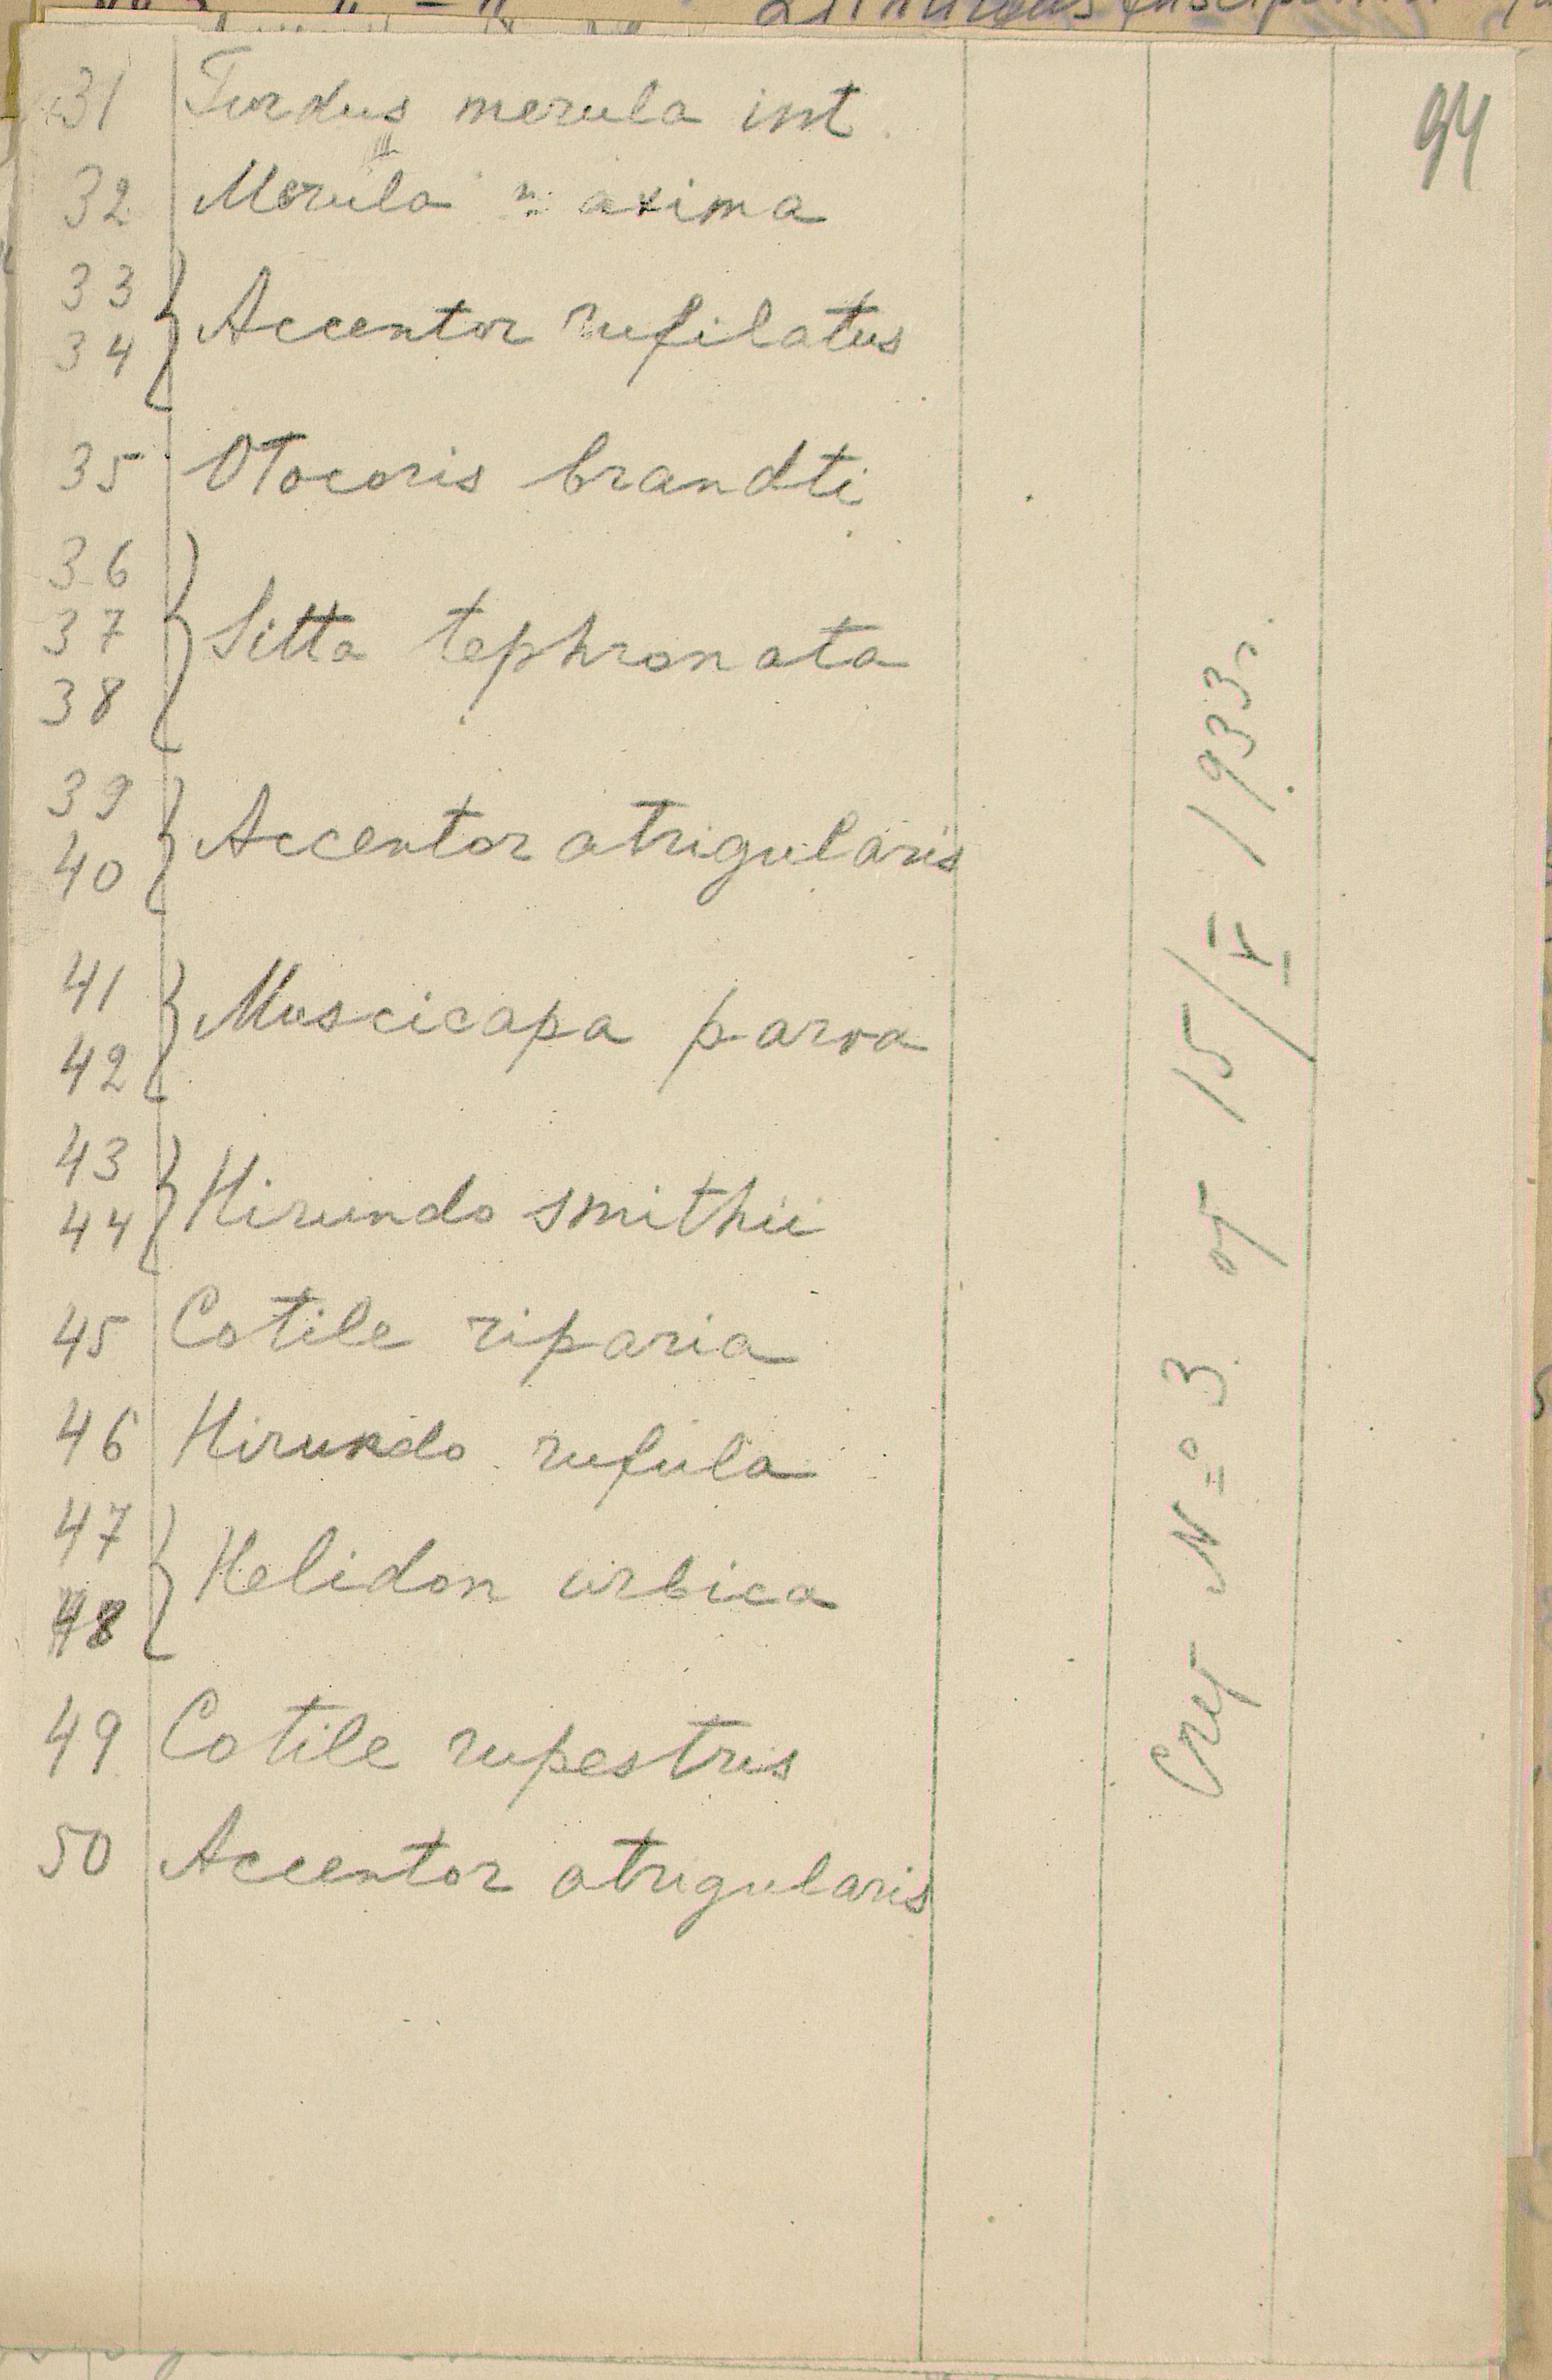 94
31 Turdus merula int.
32 Merula maxima
33
34 Accentor rufilatus
35 Otocoris brandti
36
37 Sitta tephronota
38
39
40 Accentor atrigularis
41
42 Muscicapa parva
43
44 Hirundo smithii
45 Cotile riparia
46 Hirundo rufula
47
48 Helidon urbica
49 Cotile rupestris
50 Accentor atrigularis
Счет № 3 от 15/V 1933 г.